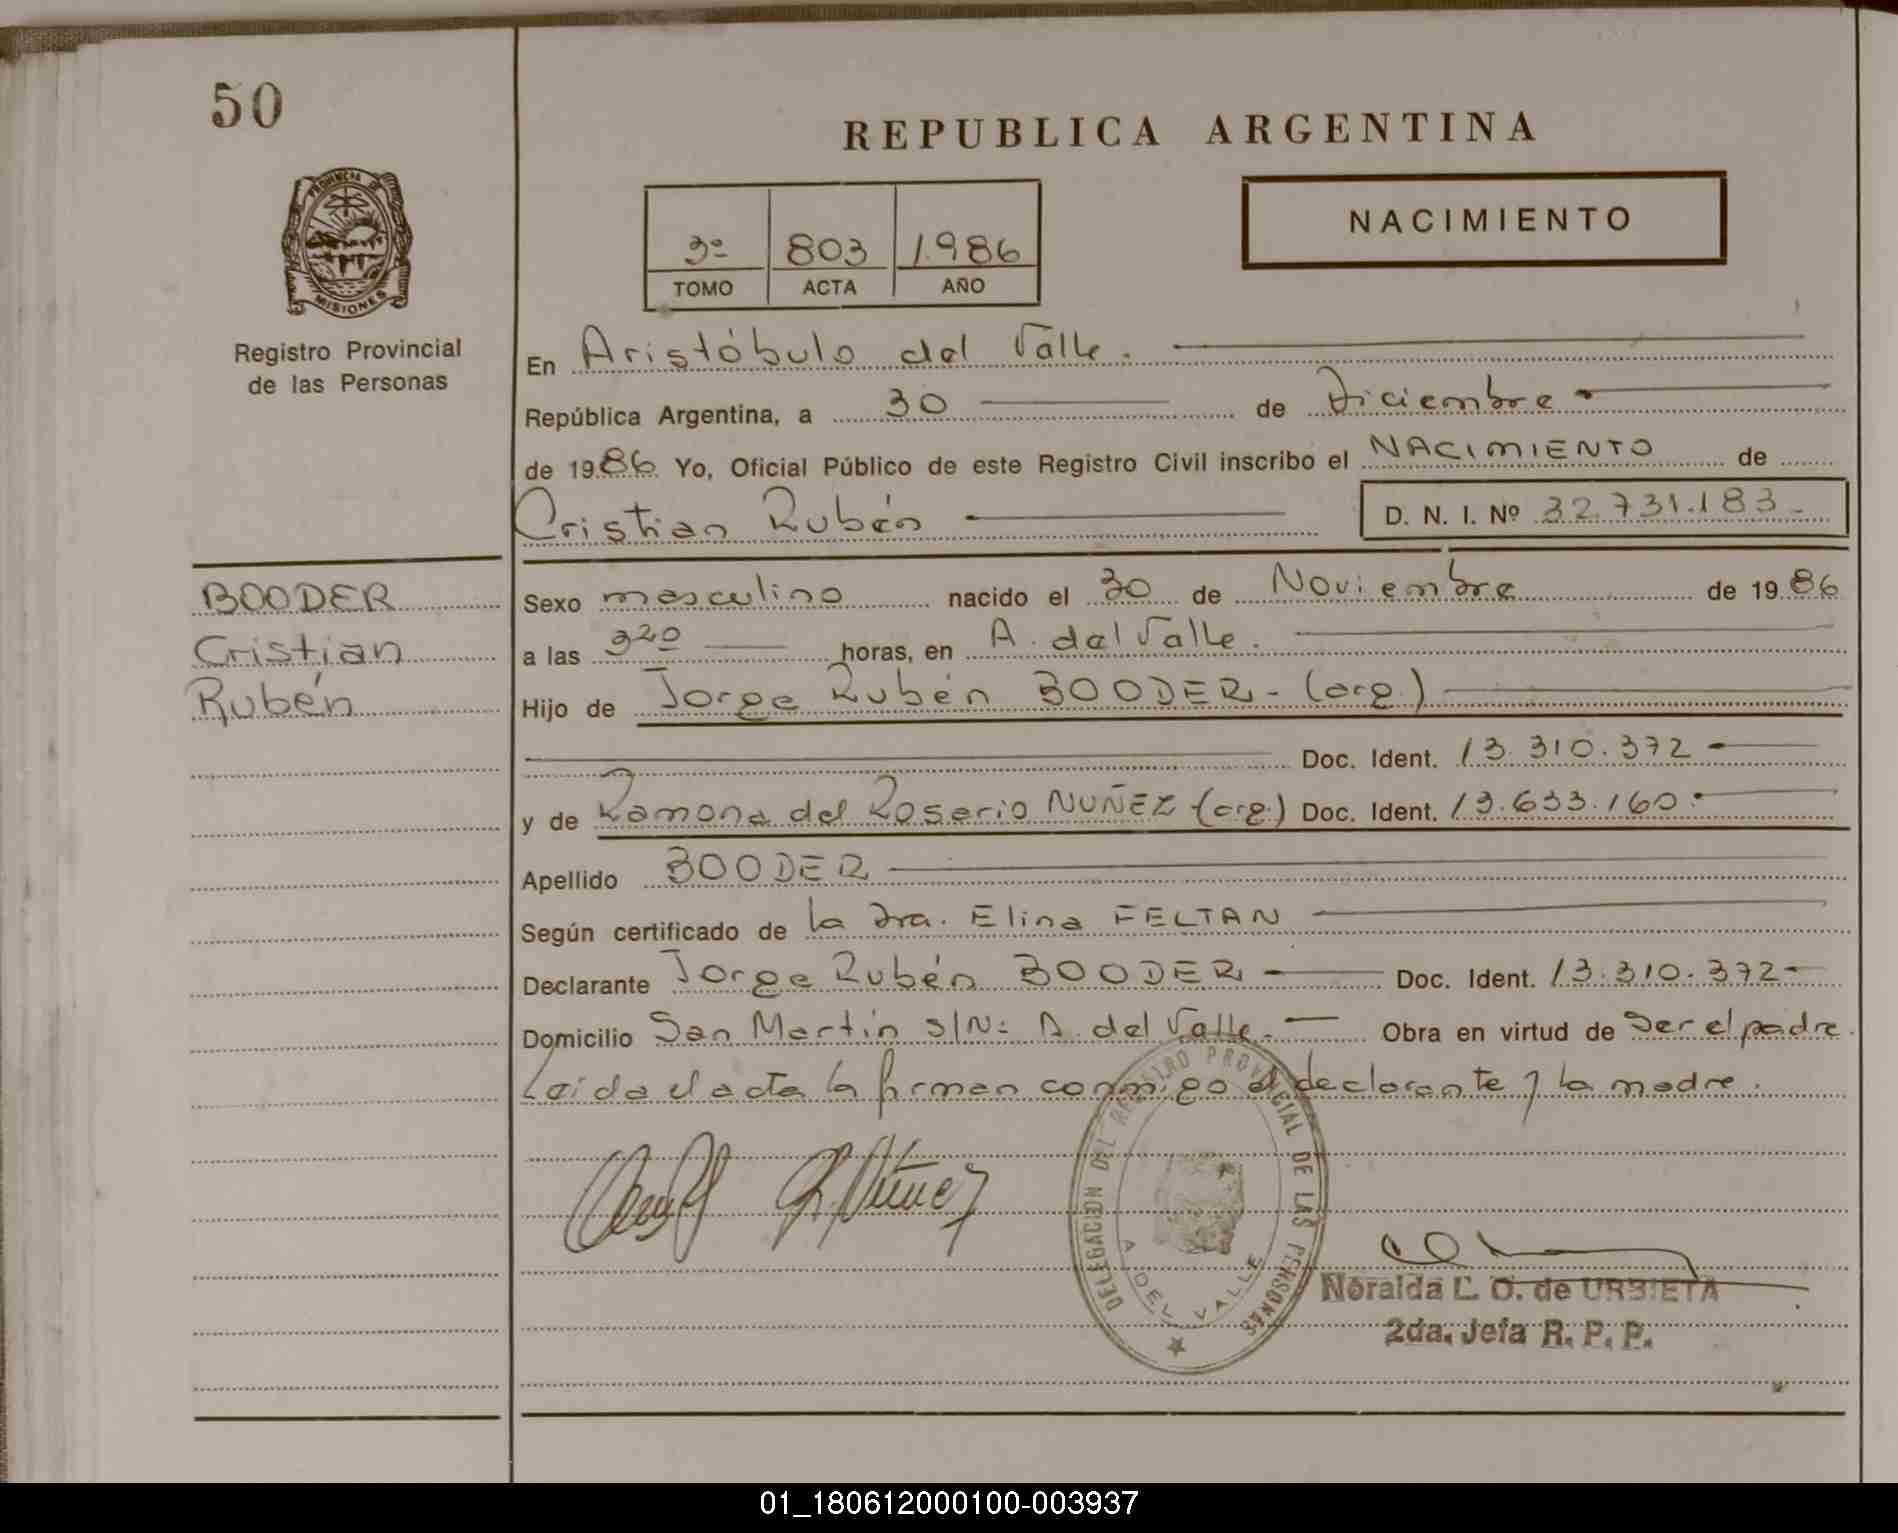 50
REPUBLICA ARGENTINA
PROVINCIA DE
MISIONES
Registro Provincial
de las Personas
3º 803 1.986
TOMO ACTA AÑO
NACIMIENTO
En Aristóbulo del Valle.
República Argentina, a 30 de Diciembre
de 1986 Yo, Oficial Público de este Registro Civil inscribo el NACIMIENTO de
Cristian Rubén D. N. I. Nº 32.731.183.-
BOODER
Cristian
Rubén
Sexo masculino nacido el 30 de Noviembre de 1986
a las 3 20 horas, en A. del Valle.
Hijo de Jorge Rubén BOODER - (arg.)
Doc. Ident. 13.310.372
y de Ramona del Rosario NUÑEZ (arg.) Doc. Ident. 13.633.160.
Apellido BOODER
Según certificado de la Dra. Elina FELTAN
Declarante Jorge Rubén BOODER Doc. Ident. 13.310.372
Domicilio San Martín s/Nº A. del Valle. Obra en virtud de ser el padre.
Leida el acta la firman conmigo el declarante y la madre.
R. Núñez
DELEGACION DEL REGISTRO PROVINCIAL DE LAS PERSONAS
A DEL VALLE
Noralda L. O. de URBIETA
2da. Jefa R. P. P.
01_180612000100-003937